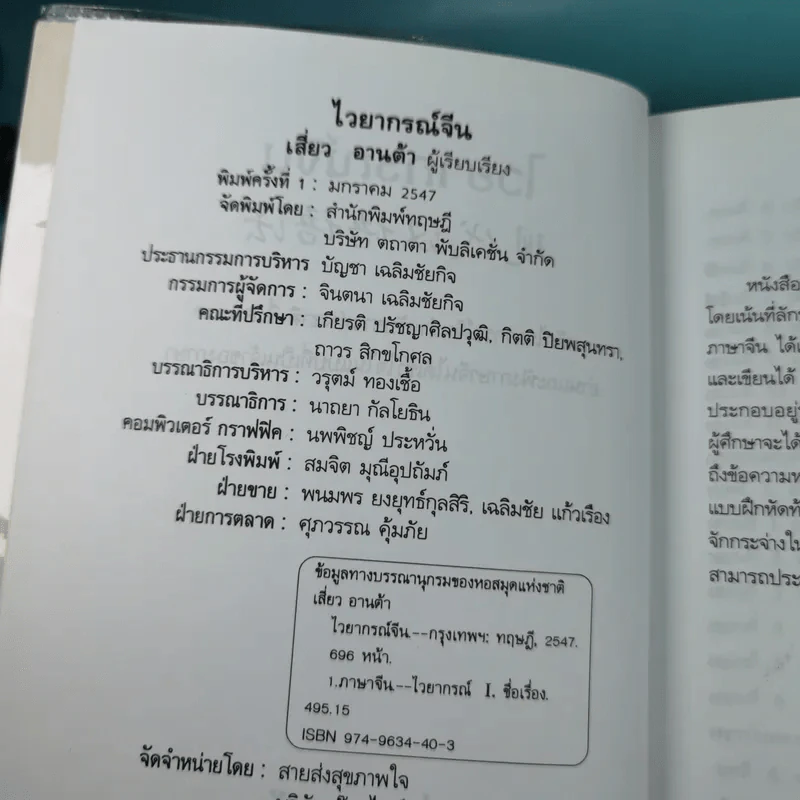 ไวยากรณ์จีน
เสี่ยว อานต้า ผู้เรียบเรียง
พิมพ์ครั้งที่ 1 : มกราคม 2547
จัดพิมพ์โดย : สำนักพิมพ์ทฤษฎี
บริษัท ตถาตา พับลิเคชั่น จำกัด
ประธานกรรมการบริหาร บัญชา เฉลิมชัยกิจ
กรรมการผู้จัดการ : จินตนา เฉลิมชัยกิจ
คณะที่ปรึกษา : เกียรติ ปรัชญาศิลปวุฒิ, กิตติ ปิยพสุนทรา,
ถาวร สิกขโกศล
บรรณาธิการบริหาร : วรุตม์ ทองเชื้อ
บรรณาธิการ : นาถยา กัลโยธิน
คอมพิวเตอร์ กราฟฟิค : นพพิชญ์ ประหวั่น
ฝ่ายโรงพิมพ์ : สมจิต มุณีอุปถัมภ์
ฝ่ายขาย : พนมพร ยงยุทธ์กุลสิริ, เฉลิมชัย แก้วเรือง
ฝ่ายการตลาด : ศุภวรรณ คุ้มภัย
ข้อมูลทางบรรณานุกรมของหอสมุดแห่งชาติ
เสี่ยว อานต้า
ไวยากรณ์จีน.--กรุงเทพฯ: ทฤษฎี, 2547.
696 หน้า.
1.ภาษาจีน--ไวยากรณ์ I. ชื่อเรื่อง.
495.15
ISBN 974-9634-40-3
จัดจำหน่ายโดย : สายส่งสุขภาพใจ
หนังสือ
โดยเน้นที่ลัก
ภาษาจีน ได้
และเขียนได้
ประกอบอยู่
ผู้ศึกษาจะได้
ถึงข้อความ
แบบฝึกหัดท้
จักกระจ่างใน
สามารถประ